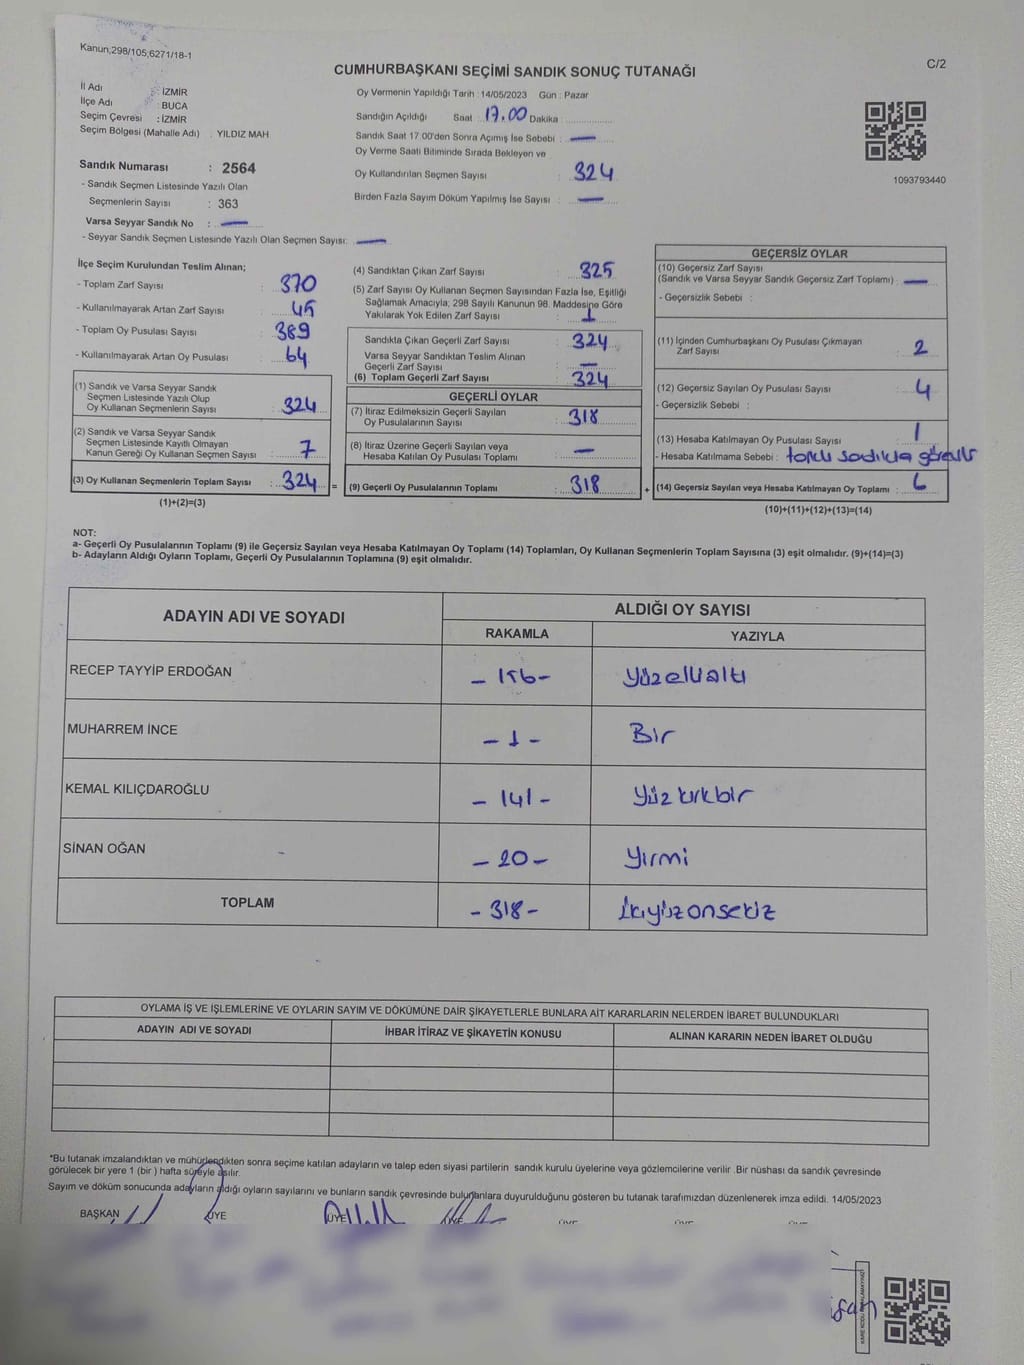 Kanun,298/105,6271/18-1
C/2
CUMHURBAŞKANI SEÇİMİ SANDIK SONUÇ TUTANAĞI
İl Adı : İZMİR
İlçe Adı : BUCA
Seçim Çevresi : İZMİR
Seçim Bölgesi (Mahalle Adı) : YILDIZ MAH
Sandık Numarası : 2564
- Sandık Seçmen Listesinde Yazılı Olan
Seçmenlerin Sayısı : 363
Varsa Seyyar Sandık No : —
- Seyyar Sandık Seçmen Listesinde Yazılı Olan Seçmen Sayısı: —
Oy Vermenin Yapıldığı Tarih :14/05/2023 Gün : Pazar
Sandığın Açıldığı Saat : 17.00 Dakika :
Sandık Saat 17.00'den Sonra Açımış İse Sebebi : —
Oy Verme Saati Bitiminde Sırada Bekleyen ve
Oy Kullandırılan Seçmen Sayısı : 324
Birden Fazla Sayım Döküm Yapılmış İse Sayısı : —
1093793440
İlçe Seçim Kurulundan Teslim Alınan;
- Toplam Zarf Sayısı : 370
- Kullanılmayarak Artan Zarf Sayısı : 45
- Toplam Oy Pusulası Sayısı : 389
- Kullanılmayarak Artan Oy Pusulası : 64
(1) Sandık ve Varsa Seyyar Sandık
Seçmen Listesinde Yazılı Olup
Oy Kullanan Seçmenlerin Sayısı : 324
(2) Sandık ve Varsa Seyyar Sandık
Seçmen Listesinde Kayıtlı Olmayan
Kanun Gereği Oy Kullanan Seçmen Sayısı : 7
(3) Oy Kullanan Seçmenlerin Toplam Sayısı : 324 =
(1)+(2)=(3)
(4) Sandıktan Çıkan Zarf Sayısı : 325
(5) Zarf Sayısı Oy Kullanan Seçmen Sayısından Fazla İse, Eşitliği
Sağlamak Amacıyla; 298 Sayılı Kanunun 98. Maddesine Göre
Yakılarak Yok Edilen Zarf Sayısı : 1
Sandıkta Çıkan Geçerli Zarf Sayısı : 324
Varsa Seyyar Sandıktan Teslim Alınan
Geçerli Zarf Sayısı : —
(6) Toplam Geçerli Zarf Sayısı : 324
GEÇERLİ OYLAR
(7) İtiraz Edilmeksizin Geçerli Sayılan
Oy Pusulalarının Sayısı : 318
(8) İtiraz Üzerine Geçerli Sayılan veya
Hesaba Katılan Oy Pusulası Toplamı : —
(9) Geçerli Oy Pusulalarının Toplamı : 318 +
GEÇERSİZ OYLAR
(10) Geçersiz Zarf Sayısı
(Sandık ve Varsa Seyyar Sandık Geçersiz Zarf Toplamı) : —
- Geçersizlik Sebebi :
(11) İçinden Cumhurbaşkanı Oy Pusulası Çıkmayan
Zarf Sayısı : 2
(12) Geçersiz Sayılan Oy Pusulası Sayısı : 4
- Geçersizlik Sebebi :
(13) Hesaba Katılmayan Oy Pusulası Sayısı : 1
- Hesaba Katılmama Sebebi :
(14) Geçersiz Sayılan veya Hesaba Katılmayan Oy Toplamı : 6
(10)+(11)+(12)+(13)=(14)
NOT:
a- Geçerli Oy Pusulalarının Toplamı (9) ile Geçersiz Sayılan veya Hesaba Katılmayan Oy Toplamı (14) Toplamları, Oy Kullanan Seçmenlerin Toplam Sayısına (3) eşit olmalıdır. (9)+(14)=(3)
b- Adayların Aldığı Oyların Toplamı, Geçerli Oy Pusulalarının Toplamına (9) eşit olmalıdır.
ADAYIN ADI VE SOYADI ALDIĞI OY SAYISI
RAKAMLA YAZIYLA
RECEP TAYYİP ERDOĞAN – 156 – Yüzellialtı
MUHARREM İNCE – 1 – Bir
KEMAL KILIÇDAROĞLU – 141 – Yüz kırkbir
SİNAN OĞAN – 20 – Yirmi
TOPLAM – 318 – İkiyüzonsekiz
OYLAMA İŞ VE İŞLEMLERİNE VE OYLARIN SAYIM VE DÖKÜMÜNE DAİR ŞİKAYETLERLE BUNLARA AİT KARARLARIN NELERDEN İBARET BULUNDUKLARI
ADAYIN ADI VE SOYADI İHBAR İTİRAZ VE ŞİKAYETİN KONUSU ALINAN KARARIN NEDEN İBARET OLDUĞU
*Bu tutanak imzalandıktan ve mühürlendikten sonra seçime katılan adayların ve talep eden siyasi partilerin sandık kurulu üyelerine veya gözlemcilerine verilir .Bir nüshası da sandık çevresinde
görülecek bir yere 1 (bir ) hafta süreyle asılır.
Sayım ve döküm sonucunda adayların aldığı oyların sayılarını ve bunların sandık çevresinde bulunanlara duyurulduğunu gösteren bu tutanak tarafımızdan düzenlenerek imza edildi. 14/05/2023
BAŞKAN ÜYE ÜYE ÜYE